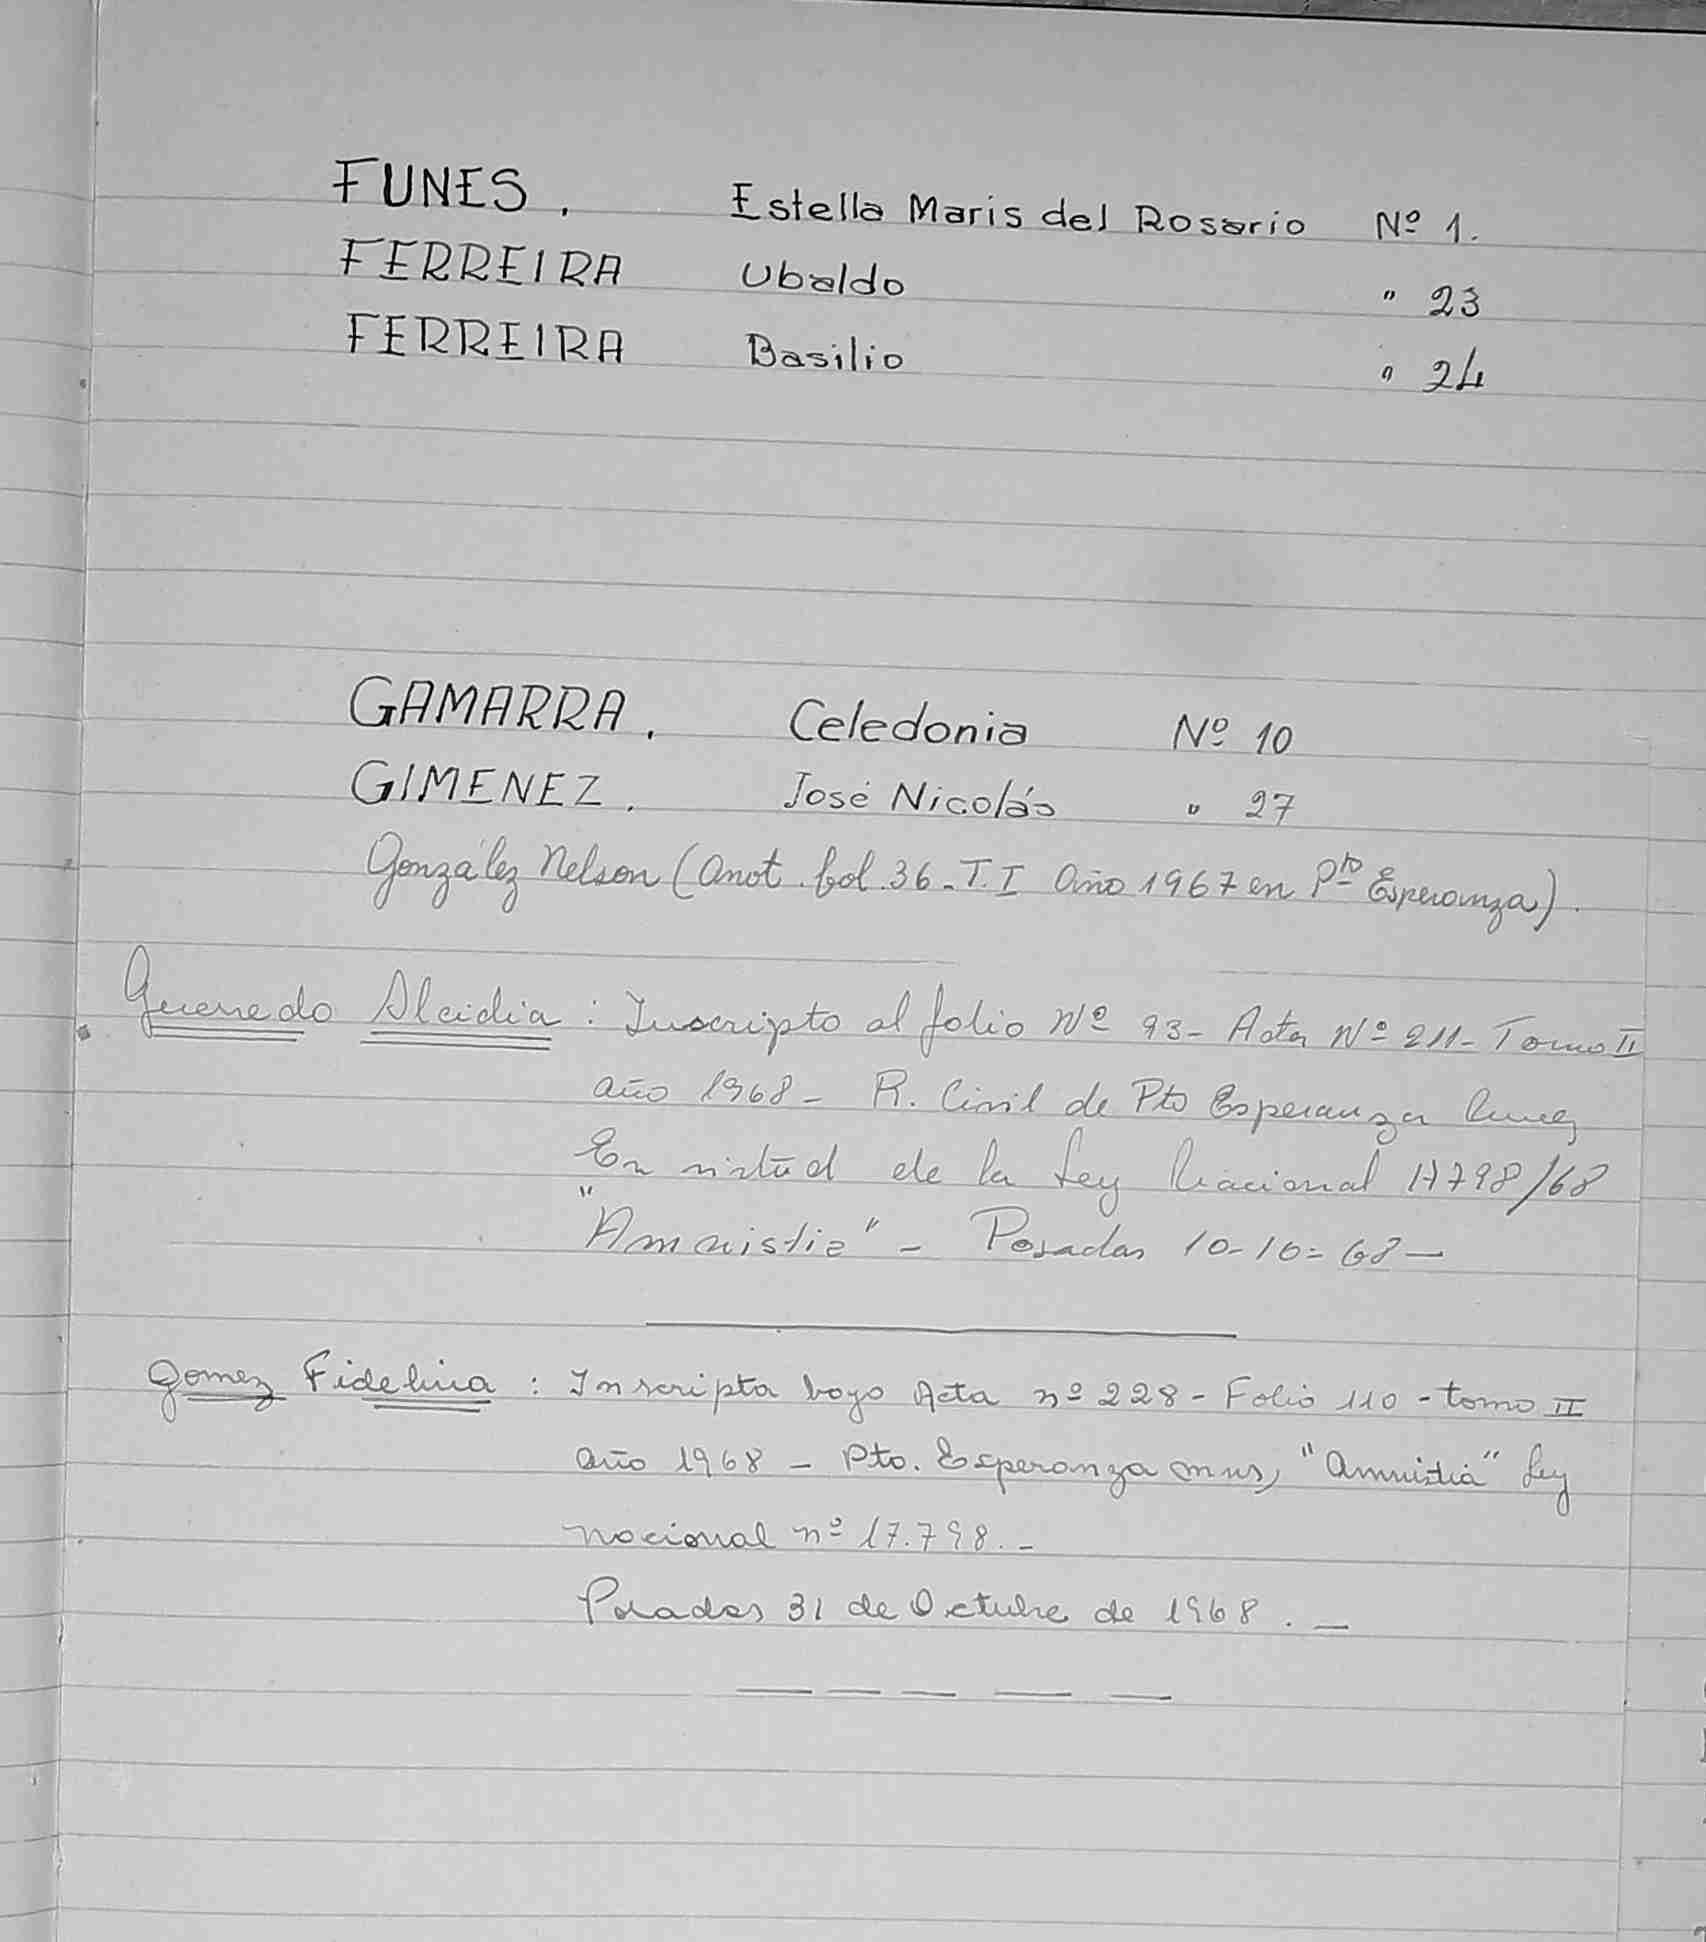 FUNES. Estella Maris del Rosario Nº 1.
FERREIRA Ubaldo " 23
FERREIRA Basilio " 24
GAMARRA. Celedonia Nº 10
GIMENEZ. José Nicolás " 27
González Nelson (Anot. fol. 36 - T. I Año 1967 en Pto Esperanza).
Alcidia : Inscripto al folio Nº 93 - Acta Nº 211 - Tomo II
año 1968 - R. Civil de Pto Esperanza
En virtud de la Ley Nacional 17798/68
"Amnistia" - Posadas 10-10=68 —
Gomez Fidelina : Inscripta bajo Acta nº 228 - Folio 110 - tomo II
año 1968 - Pto. Esperanza mns, "Amnistia" Ley
nacional nº 17.798. -
Posadas 31 de Octubre de 1968. —